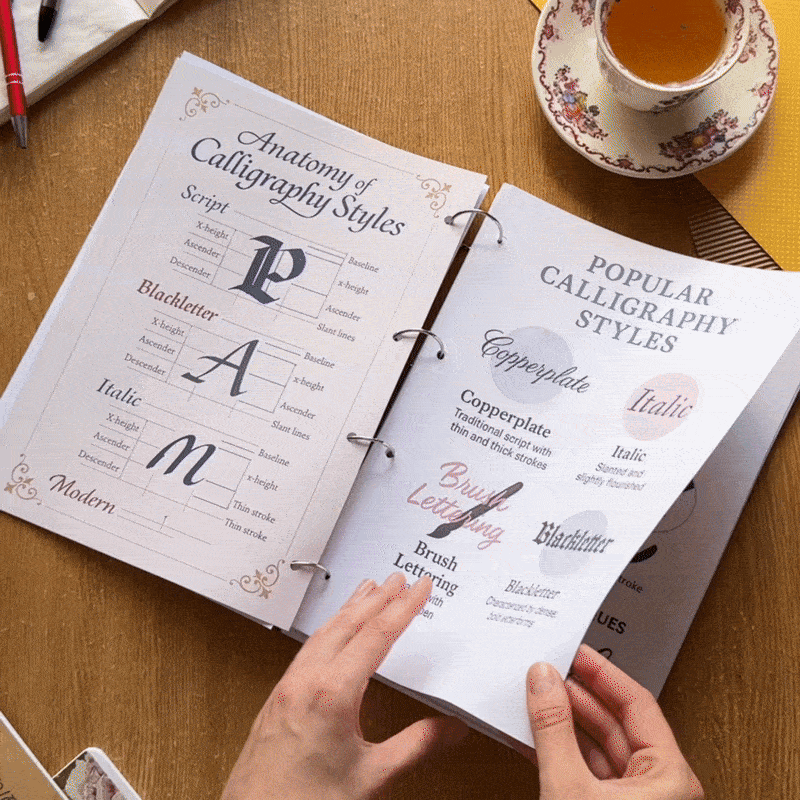 Anatomy of
Calligraphy Styles
Script
X-height
Ascender
Descender
P
Baseline
x-height
Ascender
Slant lines
Blackletter
X-height
Ascender
Descender
A
Baseline
x-height
Ascender
Slant lines
Italic
X-height
Ascender
Descender
m
Baseline
x-height
Thin stroke
Thin stroke
Modern
POPULAR
CALLIGRAPHY
STYLES
Copperplate
Copperplate
Traditional script with
thin and thick strokes
Italic
Italic
Slanted and
slightly flourished
Brush
Lettering
Brush
Lettering
with
Blackletter
Blackletter
Characterized by dense,
bold letterforms
stroke
UES